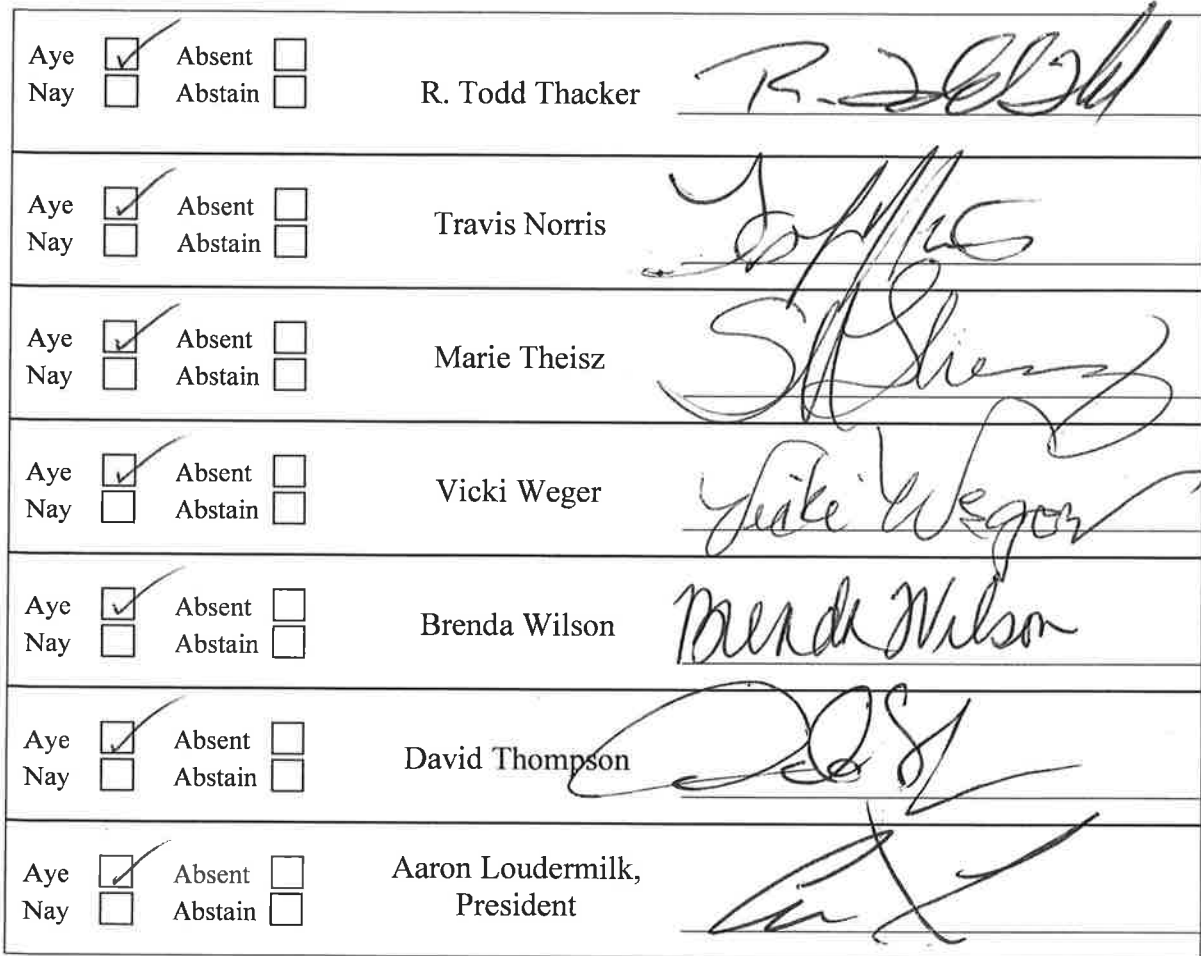 Aye Absent
Nay Abstain
R. Todd Thacker
Aye Absent
Nay Abstain
Travis Norris
Aye Absent
Nay Abstain
Marie Theisz
Aye Absent
Nay Abstain
Vicki Weger
Aye Absent
Nay Abstain
Brenda Wilson
Brenda Wilson
Aye Absent
Nay Abstain
David Thompson
Aye Absent
Nay Abstain
Aaron Loudermilk,
President